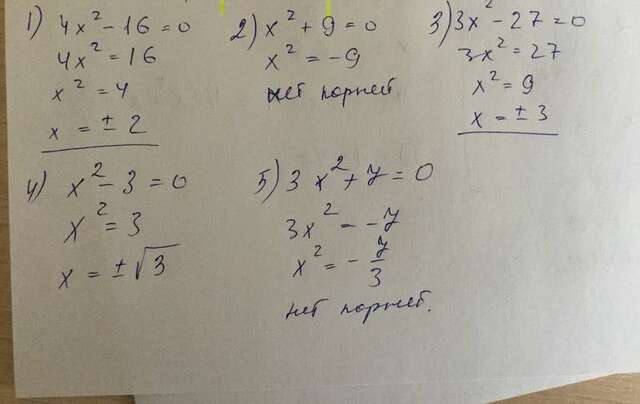 1) 4x² - 16 = 0
4x² = 16
x² = 4
x = ± 2
2) x² + 9 = 0
x² = -9
нет корней
3) 3x² - 27 = 0
3x² = 27
x² = 9
x = ± 3
4) x² - 3 = 0
x² = 3
x = ±√3
5) 3x² + 7 = 0
3x² = -7
x² = -7/3
нет корней.